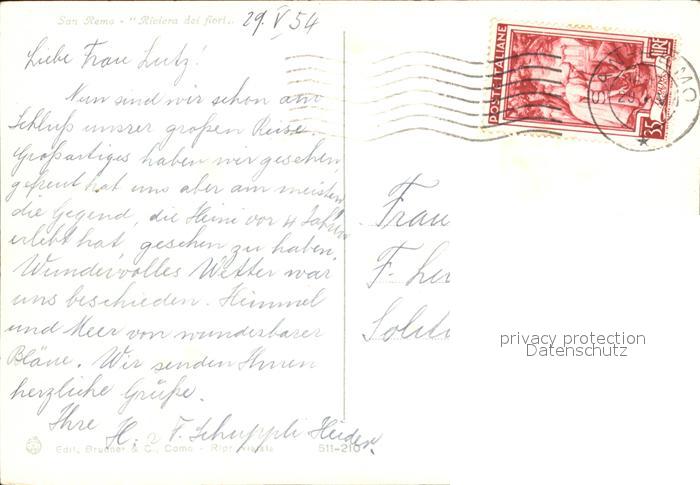 San Remo - "Riviera dei fiori..
29. V 54
Liebe Frau Lutz!
Nun sind wir schon am
Schluß unsrer großen Reise.
Großartiges haben wir gesehen,
gefreut hat uns aber am meisten
die Gegend, die Heini vor 4 Jahren
erlebt hat, gesehen zu haben.
Wundervolles Wetter war
uns beschieden. Himmel
und Meer von wunderbarer
Bläue. Wir senden Ihnen
herzliche Grüße.
Ihre
H. & F. Schuppli Heiden.
Edit. Brunner & C., Como - Ripr. vietata 511-210
POSTE ITALIANE
LIRE
35
SAN
Frau
F.
privacy protection
Datenschutz